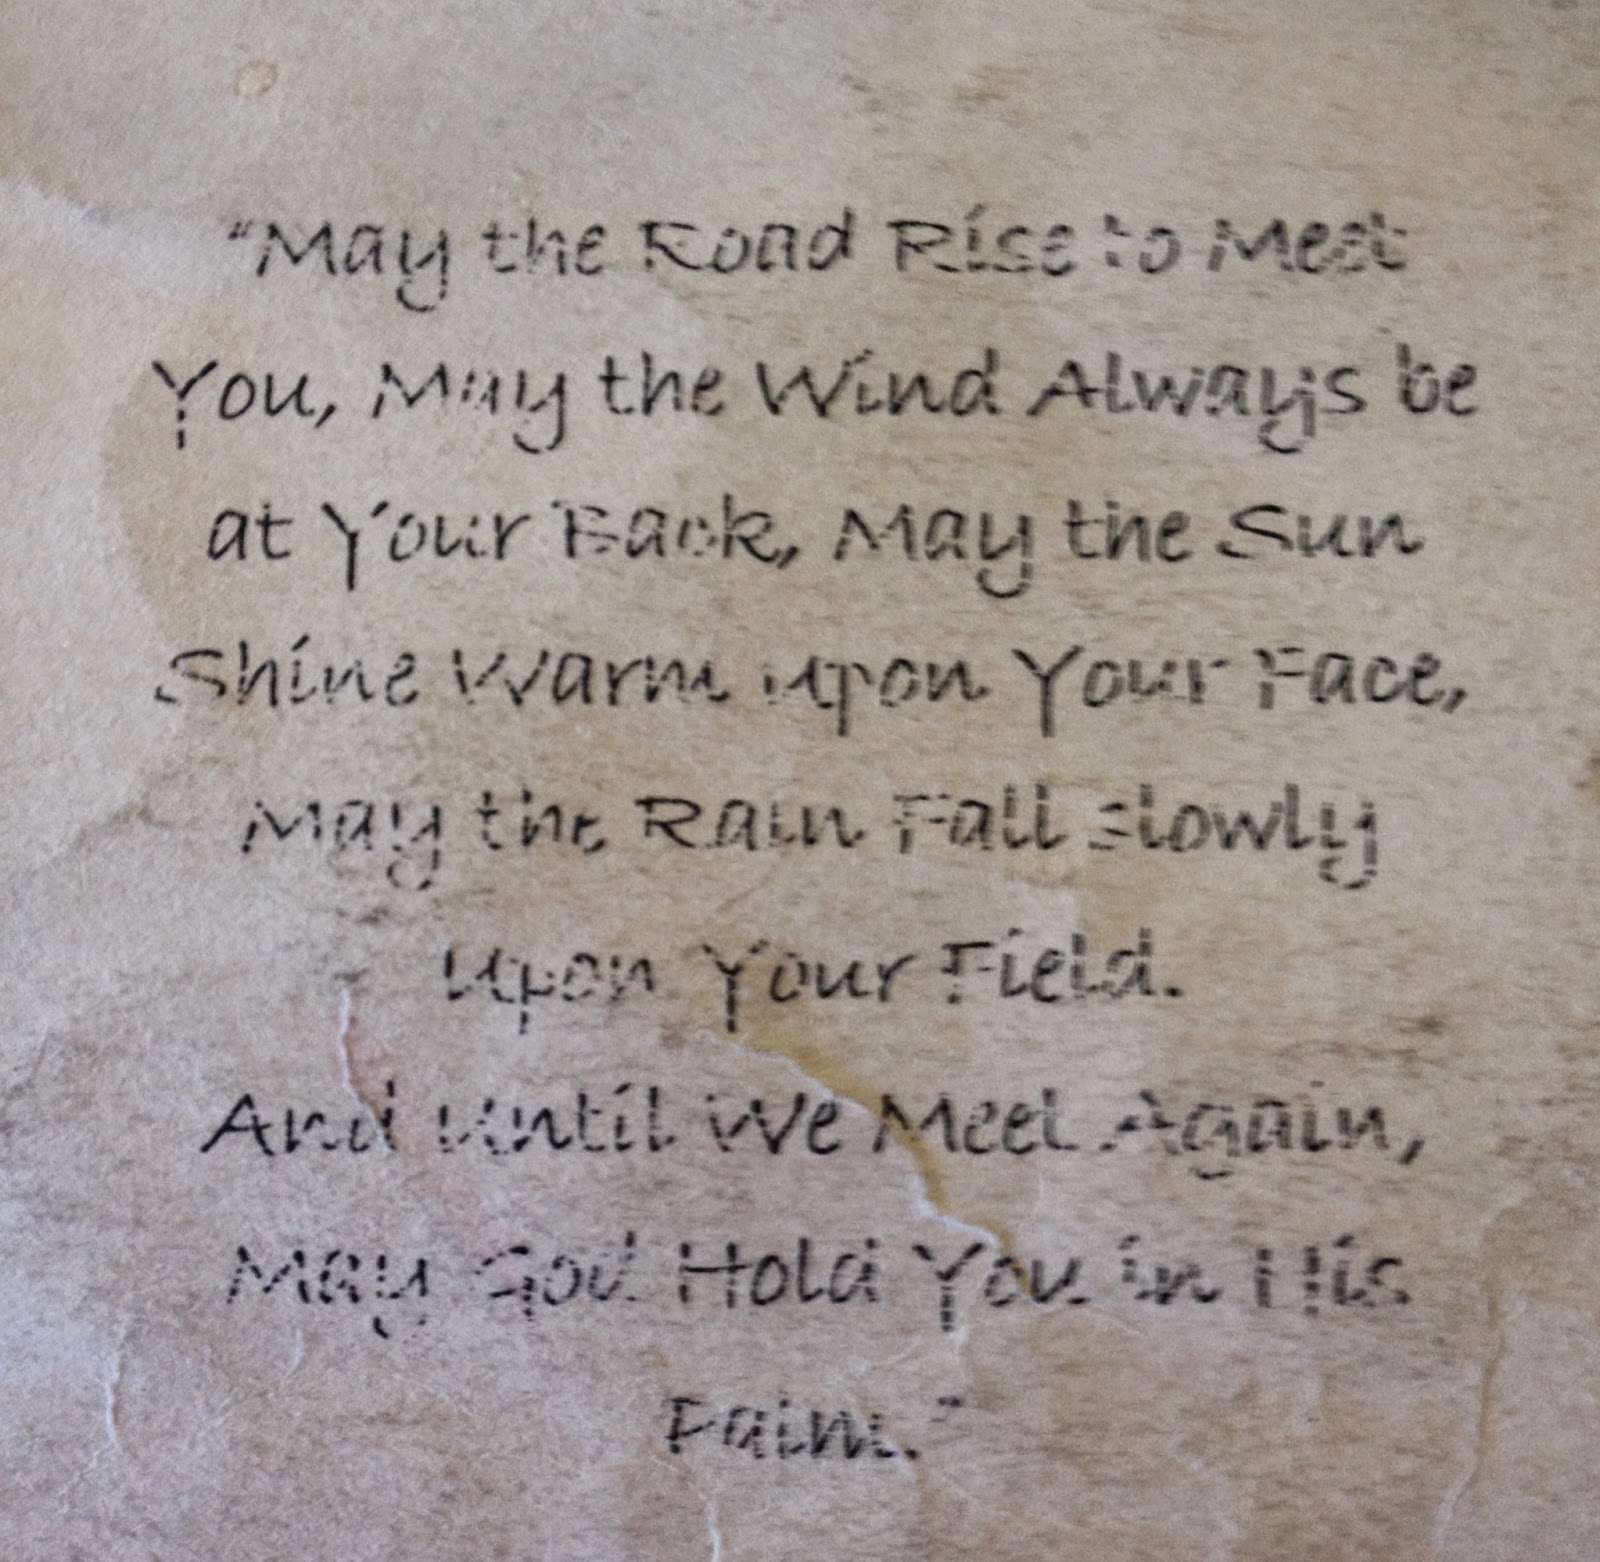 "May the Road Rise to Meet
You, May the Wind Always be
at Your Back, May the Sun
Shine Warm upon Your Face,
May the Rain Fall slowly
Upon Your Field.
And Until We Meet Again,
May God Hold You in His
Palm."